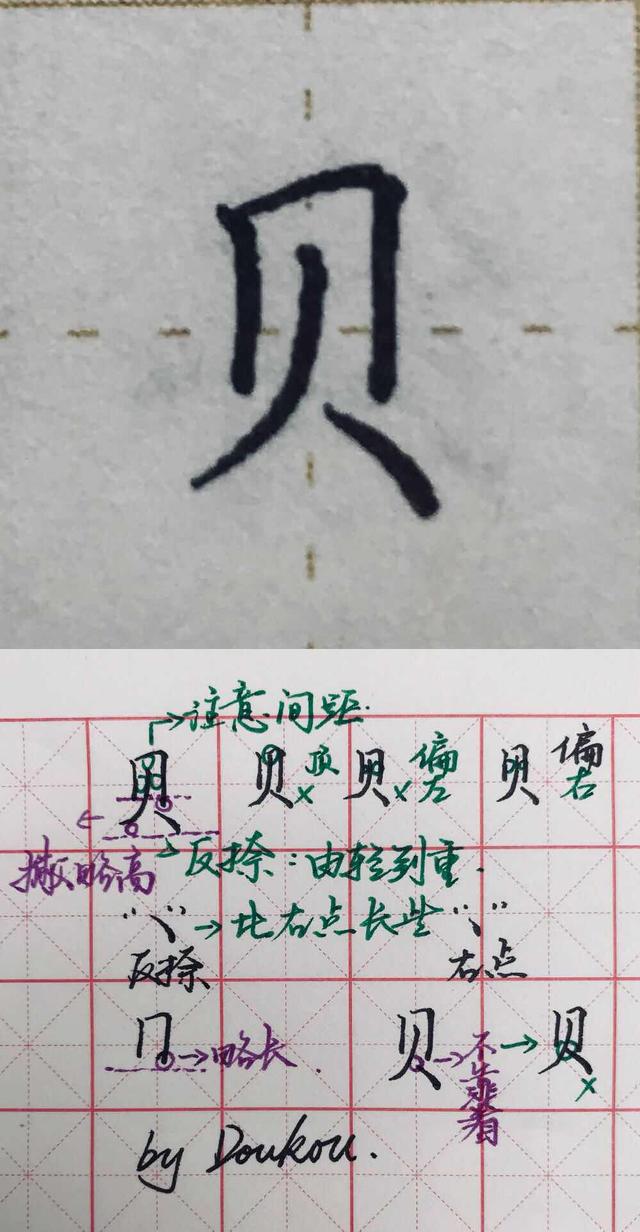 贝
→注意间距.
贝 贝 顶 × 贝 × 偏左 贝 偏右
撇略高
反捺:由轻到重.
“㇏”→比右点长些“丶”
反捺 右点
冂→略长. 贝→不靠着→贝 ×
by Doukou.